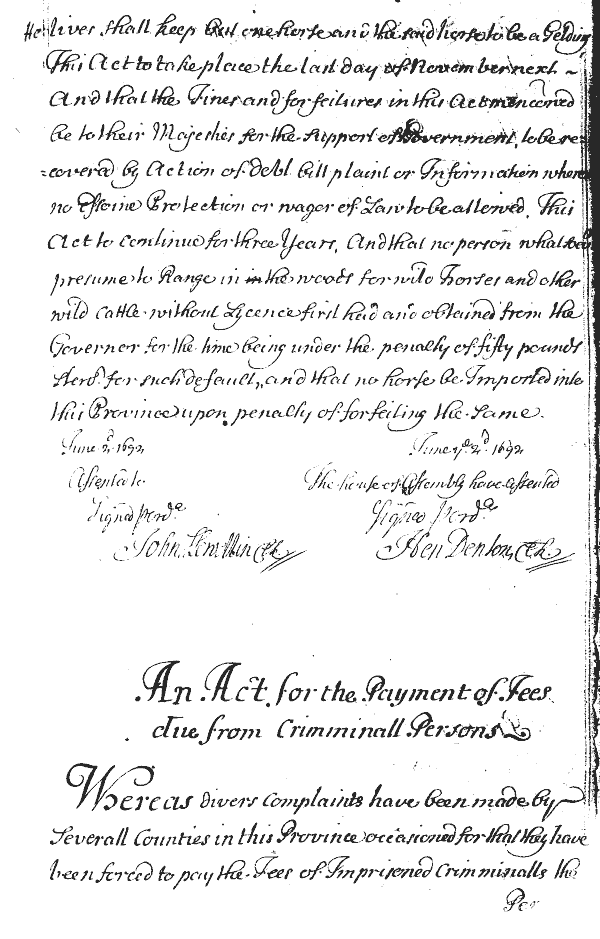 He lives shall keep but one horse and the said horse to be a Gelding
This Act to take place the last day of November next ~
And that the Fines and forfeitures in this Act menconed
be to their Majesties for the support of Government, to be re=
=covered by Action of debt bill plaint or Information where
no Essoine Protection or wager of Law to be allowed, This
Act to continue for three Years, And that no person whatsoever
presume to Range in in the woods for wild horses and other
wild Cattle without Lycence first had and obtained from the
Governor for the time being under the penalty of fifty pounds
sterd. for such default, and that no horse be Imported into
this Province upon penalty of forfeiting the same.
June 2d. 1692 June ye. 2d. 1692
Assented to The house of Assembly have assented
Signed perd.e Signed perd.e
John Lewellin Clk Hen Denton, Clk.
An Act for the Payment of Fees
due from Criminall Persons
Whereas divers Complaints have been made by
Severall Counties in this Province occasioned for that they have
been forced to pay the Fees of Imprisoned Criminalls the
Per